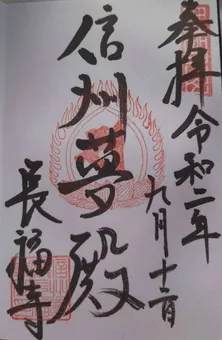 奉拝 令和二年
九月十二日
信州夢殿
長福寺